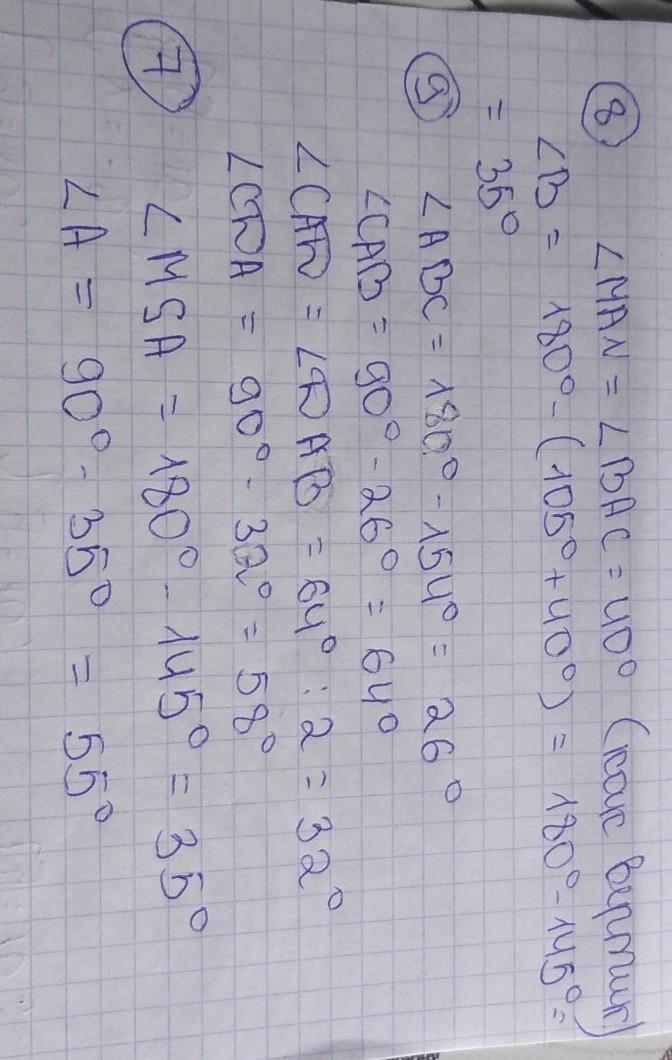 8 ∠MAN = ∠BAC = 40° (как вертик)
∠B = 180° - (105° + 40°) = 180° - 145° =
= 35°
9 ∠ABC = 180° - 154° = 26°
∠CAB = 90° - 26° = 64°
∠CAD = ∠DAB = 64° : 2 = 32°
∠CDA = 90° - 32° = 58°
7 ∠MSA = 180° - 145° = 35°
∠A = 90° - 35° = 55°